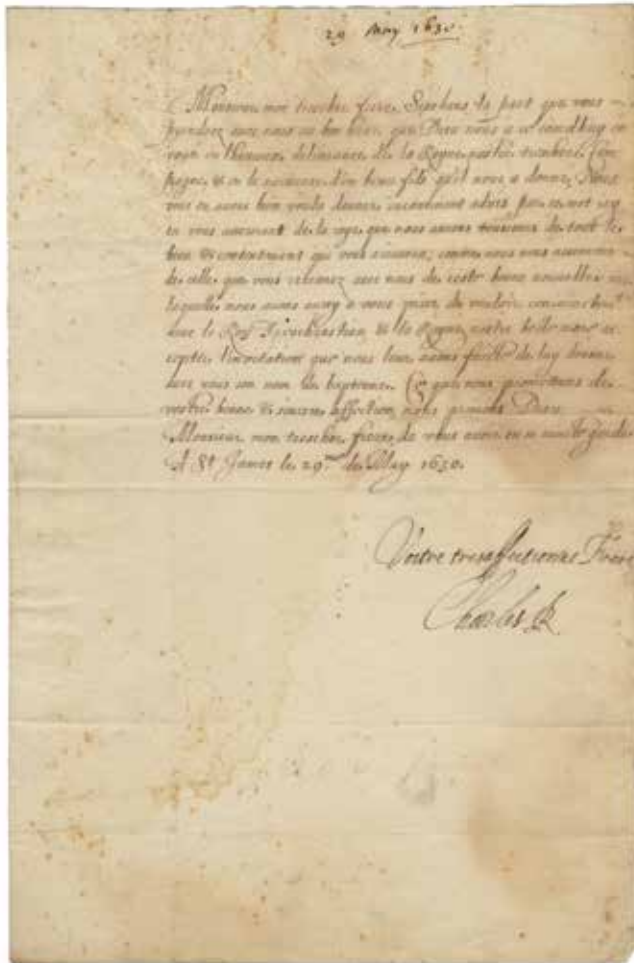 29 May 1630.
Monsieur mon trescher frere. Sçachans la part que vous
prendrez avec nous au bon heur, que Dieu nous a
en l'heureuse delivrance de la Royne nostre treschere Com
pagne, & en la naissance d'un beau fils qu'il nous a donné, Nous
vous en avons bien voulu donner incontinent advis par
vous asseurant de la joye que nous aurons tousiours de tout le
bien & contentment qui vous comme nous nous asseurons
de celle, que vous avec nous de ceste bonne nouvelle
laquelle nous avons a vous prier de vouloir
avec le Roy Treschrestien & la Royne nostre belle mere
cepter l'invitation que nous leur avons faicte de luy donner
avec vous son nom de baptesme. Ce que nous promettans de
vostre bonne & sincere affection, nous prierons Dieu
Monsieur mon trescher frere, de vous avoir en sa
A St James le 29me de May 1630.
Vostre tresaffectionné Frere
Charles R